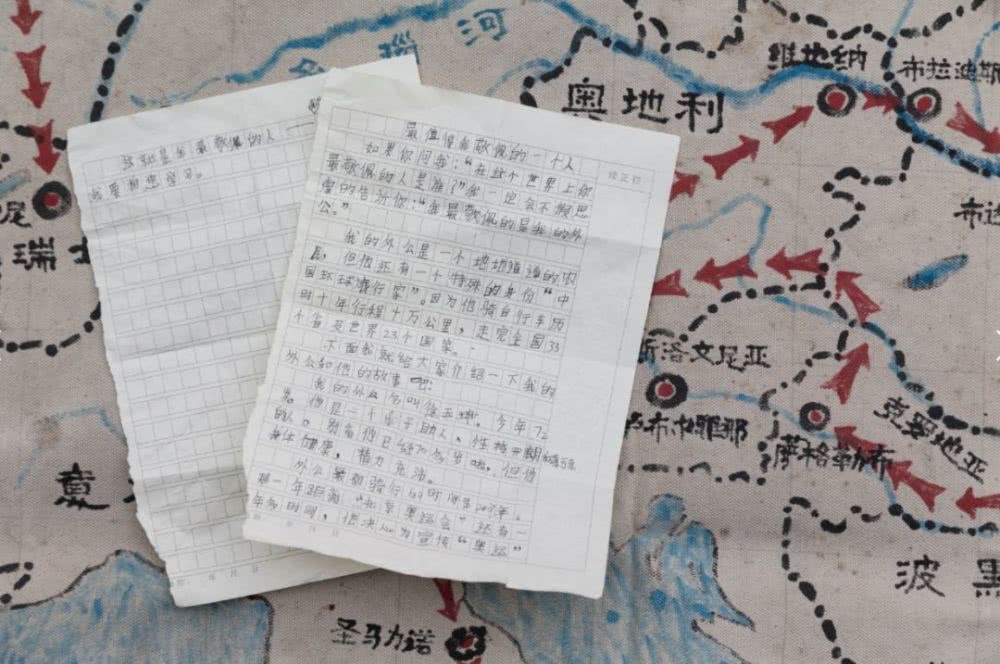 瑙河
维也纳
布拉迪斯
奥地利
这就是我最敬佩的人——
我要向您学习。
最值得我敬佩的一个人
修正栏
如果你问我：“在这个世界上你
最敬佩的人是谁？”我一定会不假思
索的告诉你：“我最敬佩的是我的外
公。”
我的外公是一个地地道道的农
民，但他还有一个特殊的身份“中
国环球骑行家”。因为他骑自行车历
时十年行程十万公里，走完全国33
个省及世界23个国家。
下面我就给大家介绍一下我的
外公和他的故事吧！
我的外公名叫徐玉坤，今年72
岁。他是一个乐于助人、性格开朗
的人。别看他已经70多岁啦，但他
身体健康，精力充沛。
外公最初骑行的时间是2007年，
那一年距离“北京奥运会”还有一
年多时间，他决心为宣传“奥运”
年 月 日
尼
瑞士
布达
斯洛文尼亚
卢布尔雅那
萨格勒布
克罗地亚
意
波黑
圣马力诺